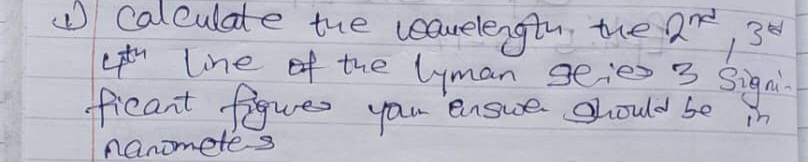 1) Calculate the wavelength, the 2nd, 3rd
4th line of the lyman series 3 Signi-
ficant figures your answer should be in
nanometers